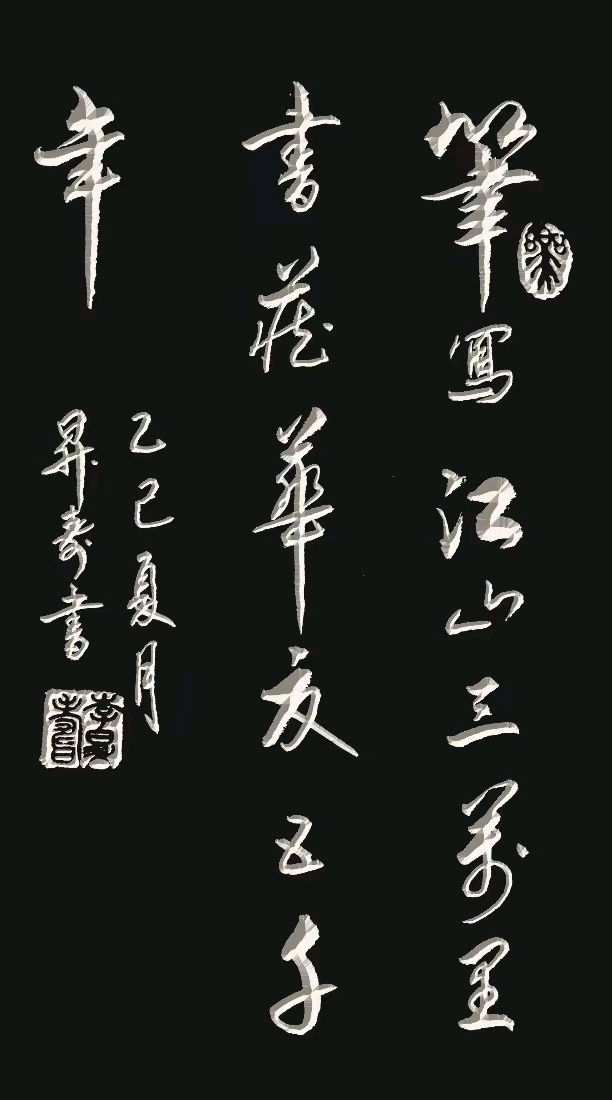 筆寫江山三萬里
書藏華夏五千
年
乙巳夏月
昇壽書